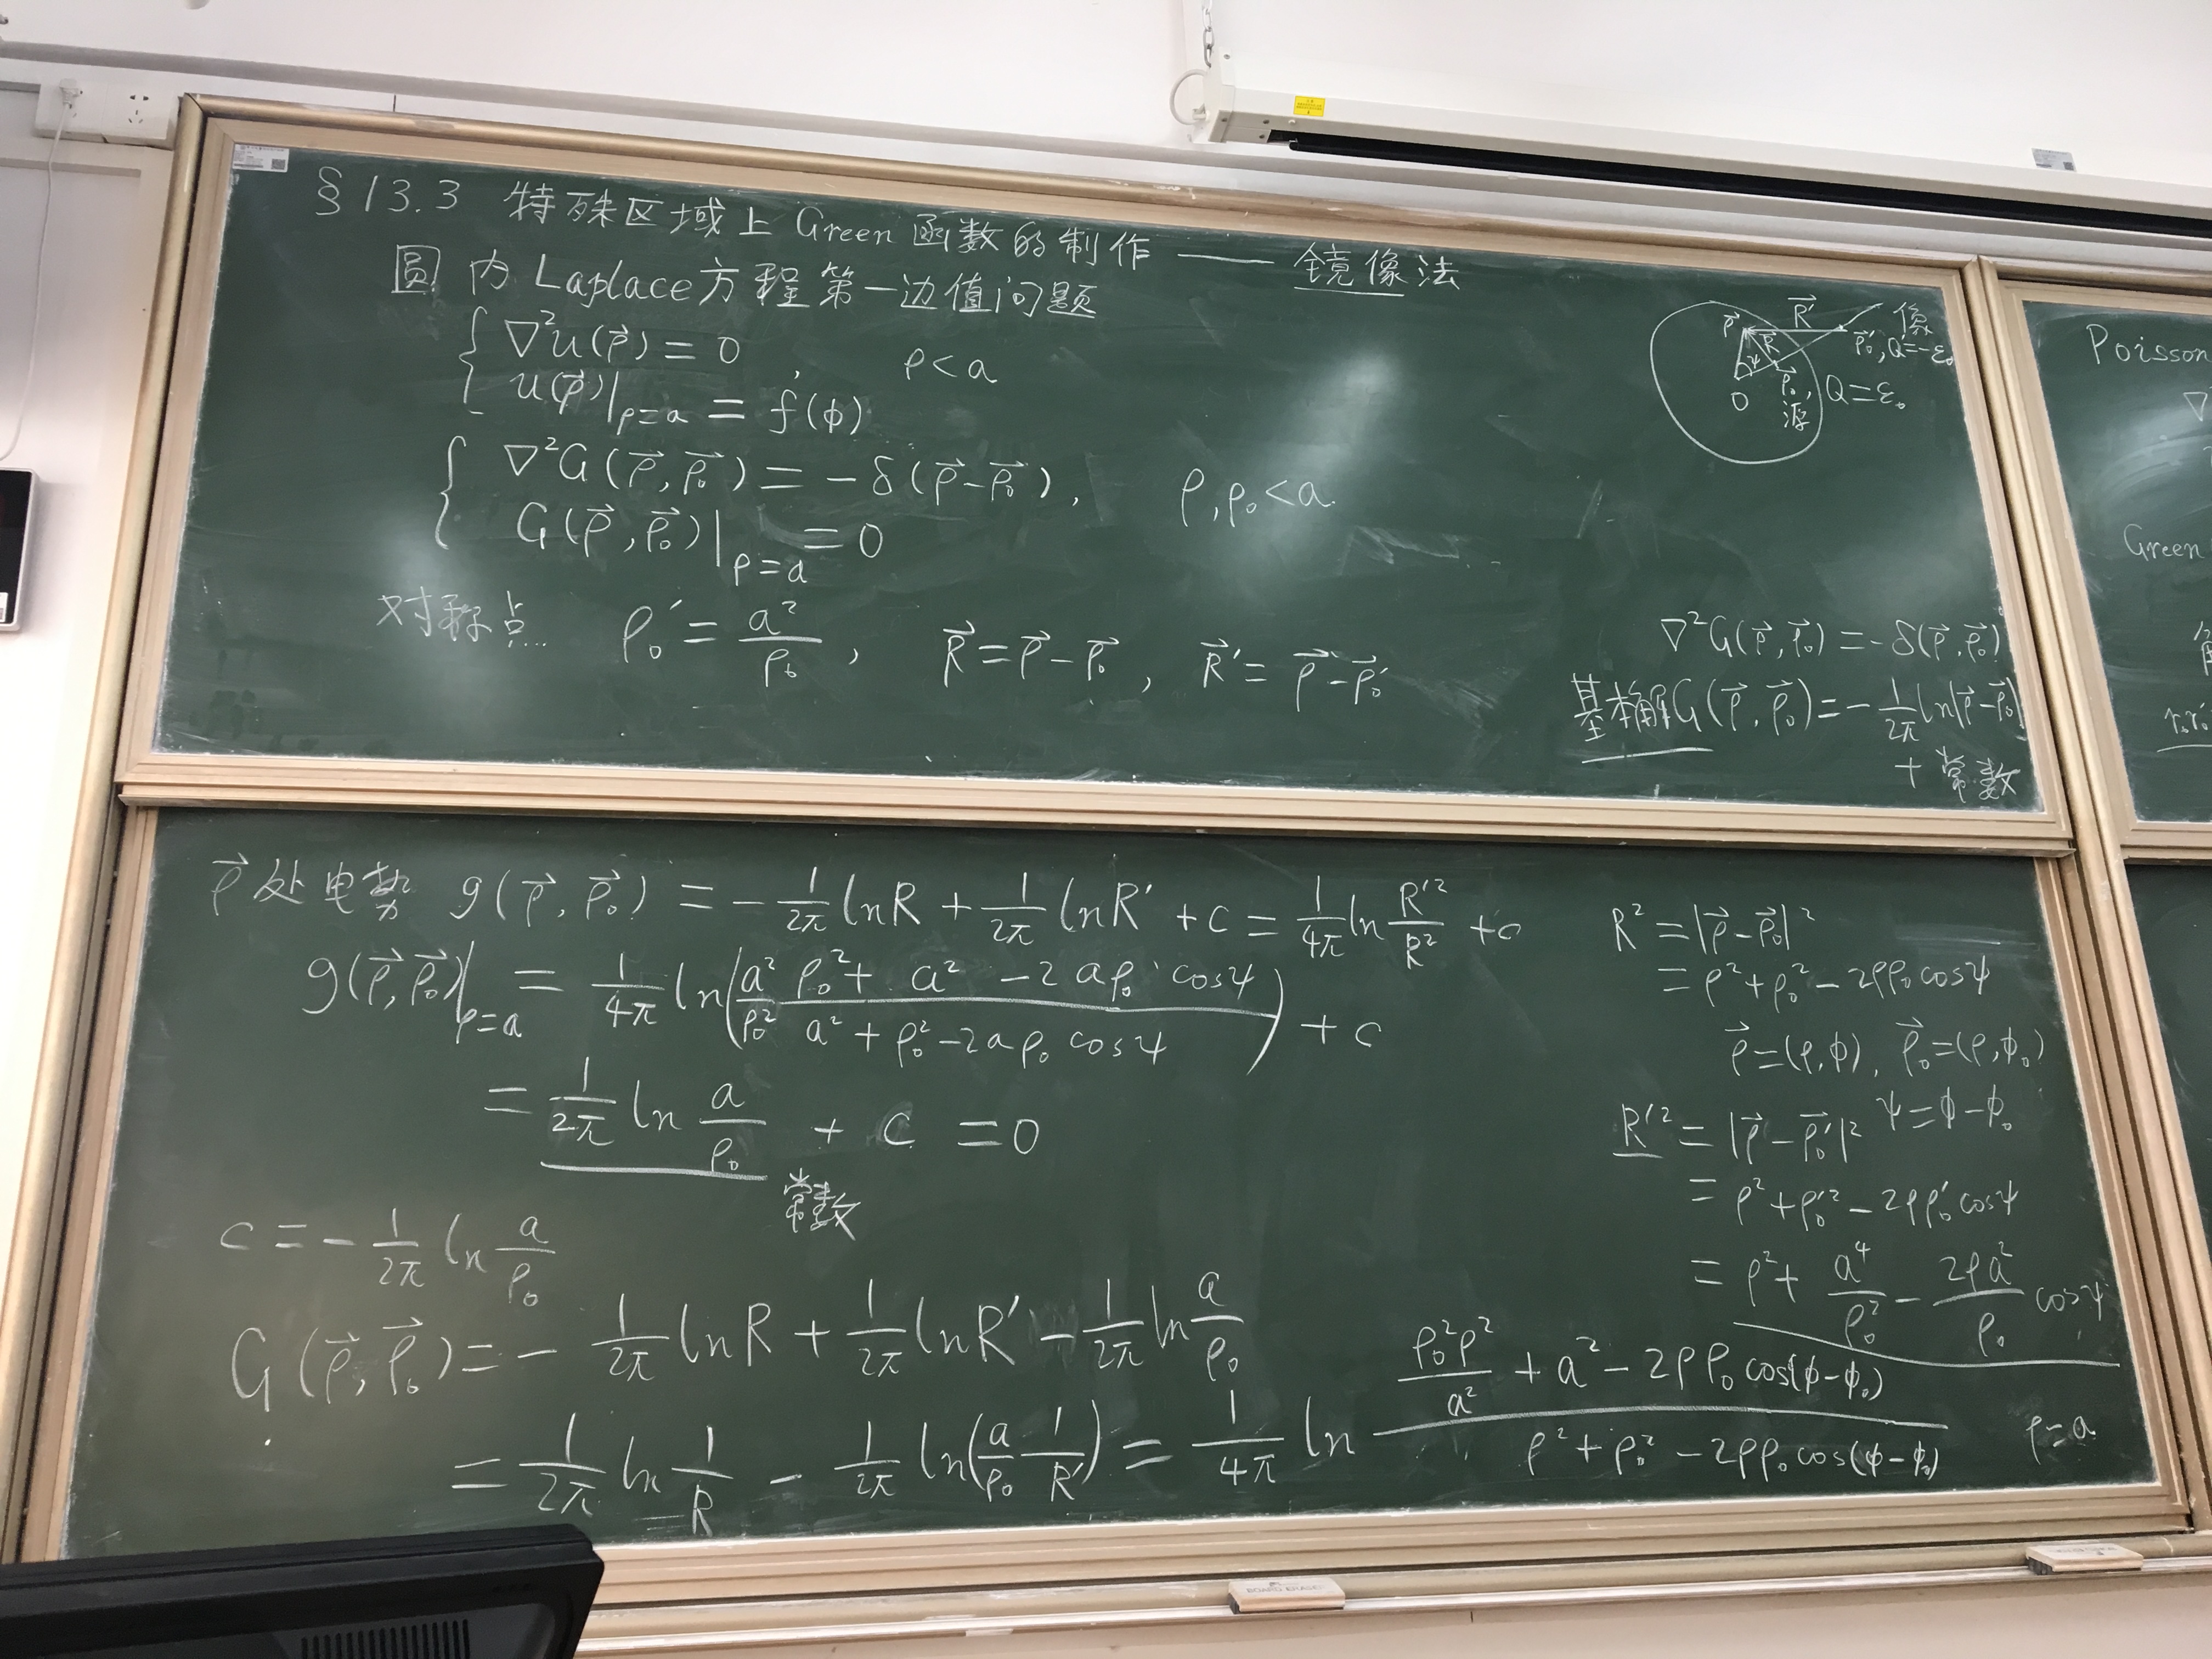 §13.3 特殊区域上Green函数的制作 —— 镜像法
圆内Laplace方程第一边值问题
{ ∇²u(ρ⃗) = 0 , ρ<a
u(ρ⃗)|ρ=a = f(φ)
{ ∇²G(ρ⃗,ρ⃗₀) = -δ(ρ⃗-ρ⃗₀), ρ,ρ₀<a.
G(ρ⃗,ρ⃗₀)|ρ=a = 0
对称点... ρ₀′ = a²/ρ₀ , R⃗=ρ⃗-ρ⃗₀ , R⃗′=ρ⃗-ρ⃗₀′
R⃗′ 像
ρ⃗ R⃗ ρ⃗₀′, Q=-ε₀
ψ
O ρ⃗₀, Q=ε₀
源
∇²G(ρ⃗,ρ⃗₀)=-δ(ρ⃗,ρ⃗₀)
基本解G(ρ⃗,ρ⃗₀)=-1/2π ln|ρ⃗-ρ⃗₀|
+常数
ρ⃗处电势 g(ρ⃗,ρ⃗₀) = -1/2π lnR + 1/2π lnR′ + c = 1/4π ln R′²/R² + c
g(ρ⃗,ρ⃗₀)|ρ=a = 1/4π ln(a²/ρ₀² (ρ₀²+a²-2aρ₀cosψ)/(a²+ρ₀²-2aρ₀cosψ)) + c
= 1/2π ln a/ρ₀ + c = 0
常数
c = -1/2π ln a/ρ₀
G(ρ⃗,ρ⃗₀) = -1/2π lnR + 1/2π lnR′ - 1/2π ln a/ρ₀
= 1/2π ln 1/R - 1/2π ln(a/ρ₀ 1/R′) = 1/4π ln (ρ₀²ρ²/a² + a² - 2ρρ₀cos(φ-φ₀))/(ρ²+ρ₀²-2ρρ₀cos(φ-φ₀)) ρ=a
R² = |ρ⃗-ρ⃗₀|²
= ρ²+ρ₀²-2ρρ₀cosψ
ρ⃗=(ρ,φ), ρ⃗₀=(ρ,φ₀)
ψ=φ-φ₀
R′² = |ρ⃗-ρ⃗₀′|²
= ρ²+ρ₀′²-2ρρ₀′cosψ
= ρ²+a⁴/ρ₀²-2ρa²/ρ₀ cosψ
Poisson
∇
Green
BOARD ERASER